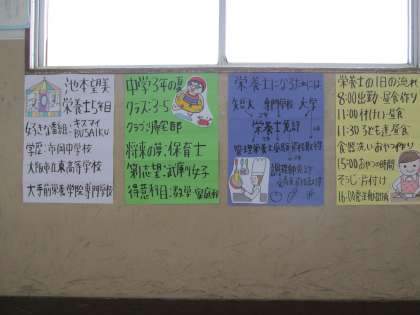 池本望美
栄養士5年目
好きな番組:キスマイ
BUSAIKU
学歴:市岡中学校
大阪市立東高等学校
大手前栄養学院専門学校
中学3年の夏
クラス:3-5
クラブ:帰宅部
将来の夢:保育士
第1志望:武庫川女子
得意科目:数学・家庭科
栄養士になるためには
短大 専門学校 大学
栄養士免許
管理栄養士受験資格取得
調理師免許
栄養士の1日の流れ
8:00出勤 昼食作り
11:00付け
11:30子ども達昼食
食器洗い おやつ作り
15:00おやつの時間
そうじ・片付け
16:00